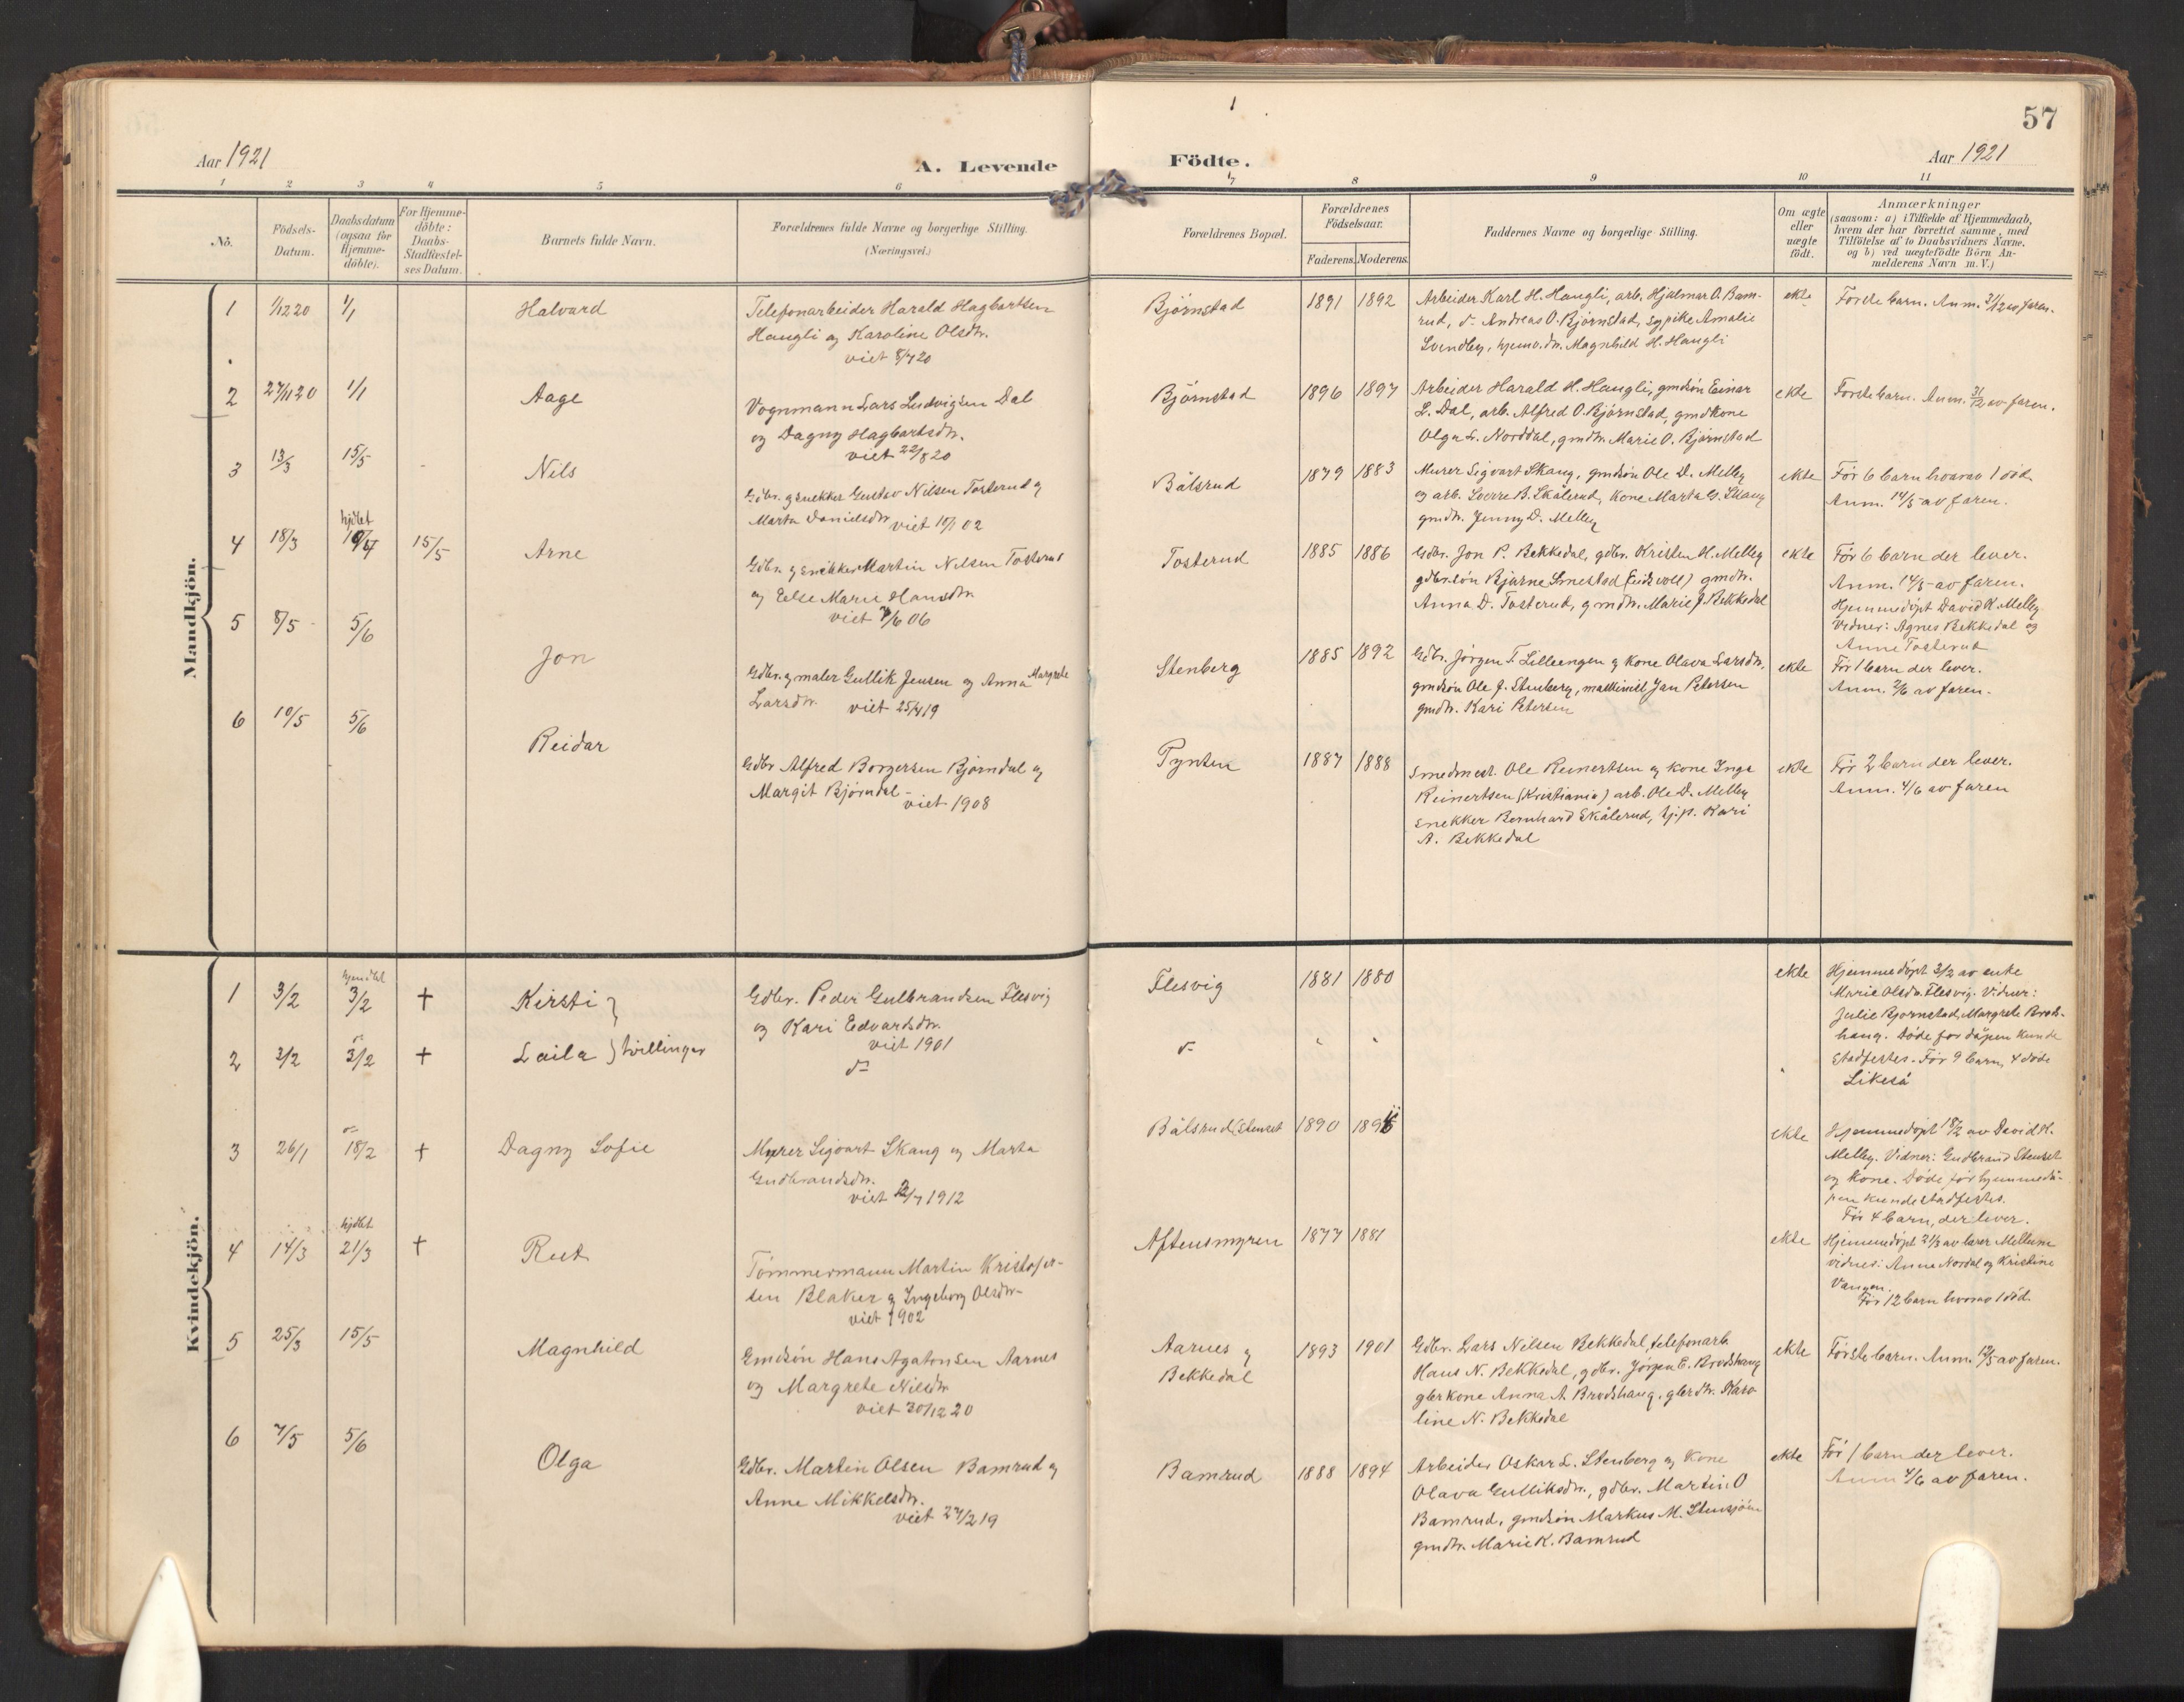 57
1
Aar 1921
A. Levende
Födte.
Aar 1921
1 2 3 4 5 6 7 8 9 10 11
No.
Födsels-Datum.
Daabsdatum (ogsaa for Hjemme-döbte).
For Hjemme-döbte: Daabs-Stadfæstel-ses Datum.
Barnets fulde Navn.
Forældrenes fulde Navne og borgerlige Stilling. (Næringsvei.)
Forældrenes Bopæl.
Forældrenes Födselsaar.
Faderens. Moderens.
Faddernes Navne og borgerlige Stilling.
Om ægte eller uægte födt.
Anmærkninger
(saasom: a) i Tilfælde af Hjemmedaab,
hvem der har forrettet samme, med
Tilföielse af to Daabsvidners Navne,
og b) ved uægtefödte Börn An-
melderens Navn m. V.)
Mandkjön.
1 1/12 20 1/1 Halvard
Telefonarbeider Harald Hagbartsen
Haugli og Karoline Olsdtr.
viet 8/7 20
Bjørnstad 1891 1892
Arbeider Karl H. Haugli, arb. Hjalmar O. Bam-
rud, do Andreas O. Bjørnstad, sypike Amalie
Svendby, hjemv. dtr. Magnhild H. Haugli
ekte
Første barn. Anm. 31/12 av faren.
2 27/11 20 1/1 Aage
Vognmann Lars Ludvigsen Dal
og Dagny Hagbartsdtr.
viet 22/8 20
Bjørnstad 1896 1897
Arbeider Harald H. Haugli, gmdsøn Einar
L. Dal, arb. Alfred O. Bjørnstad, gmdkone
Olga L. Norddal, gmdtr. Marie O. Bjørnstad
ekte
Første barn. Anm. 31/12 av faren.
3 13/3 15/5 - Nils
Gdbr. og snekker Gustav Nilsen Tosterud og
Marta Danielsdtr. viet 10/1 02
Bålsrud 1879 1883
Murer Sigvart Skaug, gmdsøn Ole D. Melby
og arb. Sverre B. Skålerud, kone Marta G. Skaug
gmdtr. Jenny D. Melby
ekte
Før 6 barn hvorav 1 død.
Anm. 14/5 av faren.
4 18/3 hjdbt 15/5 Arne
Gdbr. og snekker Martin Nilsen Tosterud
og Else Marie Hansdtr.
viet 06
Tosterud 1885 1886
Gdbr. Jon P. Bekkedal, gdbr. Kristen H. Melby
gdbr.søn Bjarne Smestad (Eidsvoll) gmdtr.
Anna D. Tosterud, gmdtr. Marie J. Bekkedal
ekte
Før 6 barn der lever.
Anm. 14/5 av faren.
Hjemmedøpt David K. Melby
Vidner: Agnes Bekkedal og
Anne Tosterud
5 8/5 5/6 Jon
Gdbr. og maler Gullik Jensen og Anna Margrete
Larsdtr. viet 25/4 19
Stenberg 1885 1892
Gdbr. Jørgen T. Lilleengen og kone Olava Larsdtr.
gmdsøn Ole J. Stenberg, maskinist Jan Petersen
gmdtr. Kari Petersen
ekte
Før 1 barn der lever.
Anm. 2/6 av faren.
6 10/5 5/6 Reidar
Gdbr Alfred Borgersen Bjørndal og
Margit Bjørndal -
viet 1908
Tynten 1887 1888
Smedmest. Ole Reinertsen og kone Inga
Reinertsen (Kristiania) arb. Ole D. Melby
snekker Bernhard Skålerud, tj.p. Kari
A. Bekkedal
ekte
Før 2 barn der lever.
Anm. 4/6 av faren
Kvindekjön.
1 3/2 hjemdbt 3/2 † Kirsti }
Gdbr. Peder Gulbrandsen Flesvig
og Kari Edvardsdtr.
viet 1901
Flesvig 1881 1880
ekte
Hjemmedøpt 3/2 av enke
Marie Olsdtr. Flesvig. Vidner:
Julie Bjørnstad, Margrete Brods-
haug. Døde før dåpen kunde
stadfestes. Før 9 barn, 4 døde
2 3/2 do 3/2 † Laila } tvillinger
do
do
Likeså
3 26/1 do 18/2 † Dagny Sofie
Murer Sigvart Skaug og Marta
Gudbrandsdtr.
viet 1912
Bålsrud (Stenset 1890
ekte
Hjemmedøpt 18/2 av David K.
Melby. Vidner: Gudbrand Stenset
og kone. Døde før hjemmedå-
pen kunde stadfestes.
Før 4 barn, der lever.
4 14/3 hjdbt 21/3 † Rut
Tømmermann Martin Kristofer-
sen Blaker og Ingeborg Olsdtr.
viet 1902
Aftensmyren 1877 1881
ekte
Hjemmedøpt 21/3 av lærer Mellum
vidner: Anne Nordal og Kristine
Vangen.
Før 12 barn hvorav 1 død.
5 25/3 15/5 Magnhild
Gmdsøn Hans Agatonsen Aarnes
og Margrete Nilsdtr.
viet 30/12 20
Aarnes og
Bekkedal
1893 1901
Gdbr. Lars Nilsen Bekkedal, telefonarb.
Hans N. Bekkedal, gdbr. Jørgen E. Brodshaug
gbrkone Anna A. Brodshaug, gbrdtr. Karo-
line N. Bekkedal
ekte
Første barn. Anm. 12/5 av faren.
6 7/5 5/6 Olga
Gdbr. Martin Olsen Bamrud og
Anne Mikkelsdtr.
viet 27/2 19
Bamrud 1888 1894
Arbeider Oskar L. Stenberg og kone
Olava Gulliksdtr., gdbr. Martin O
Bamrud, gmdsøn Markus M. Stensjøen
gmdtr. Marie K. Bamrud
ekte
Før 1 barn der lever.
Anm 4/6 av faren.